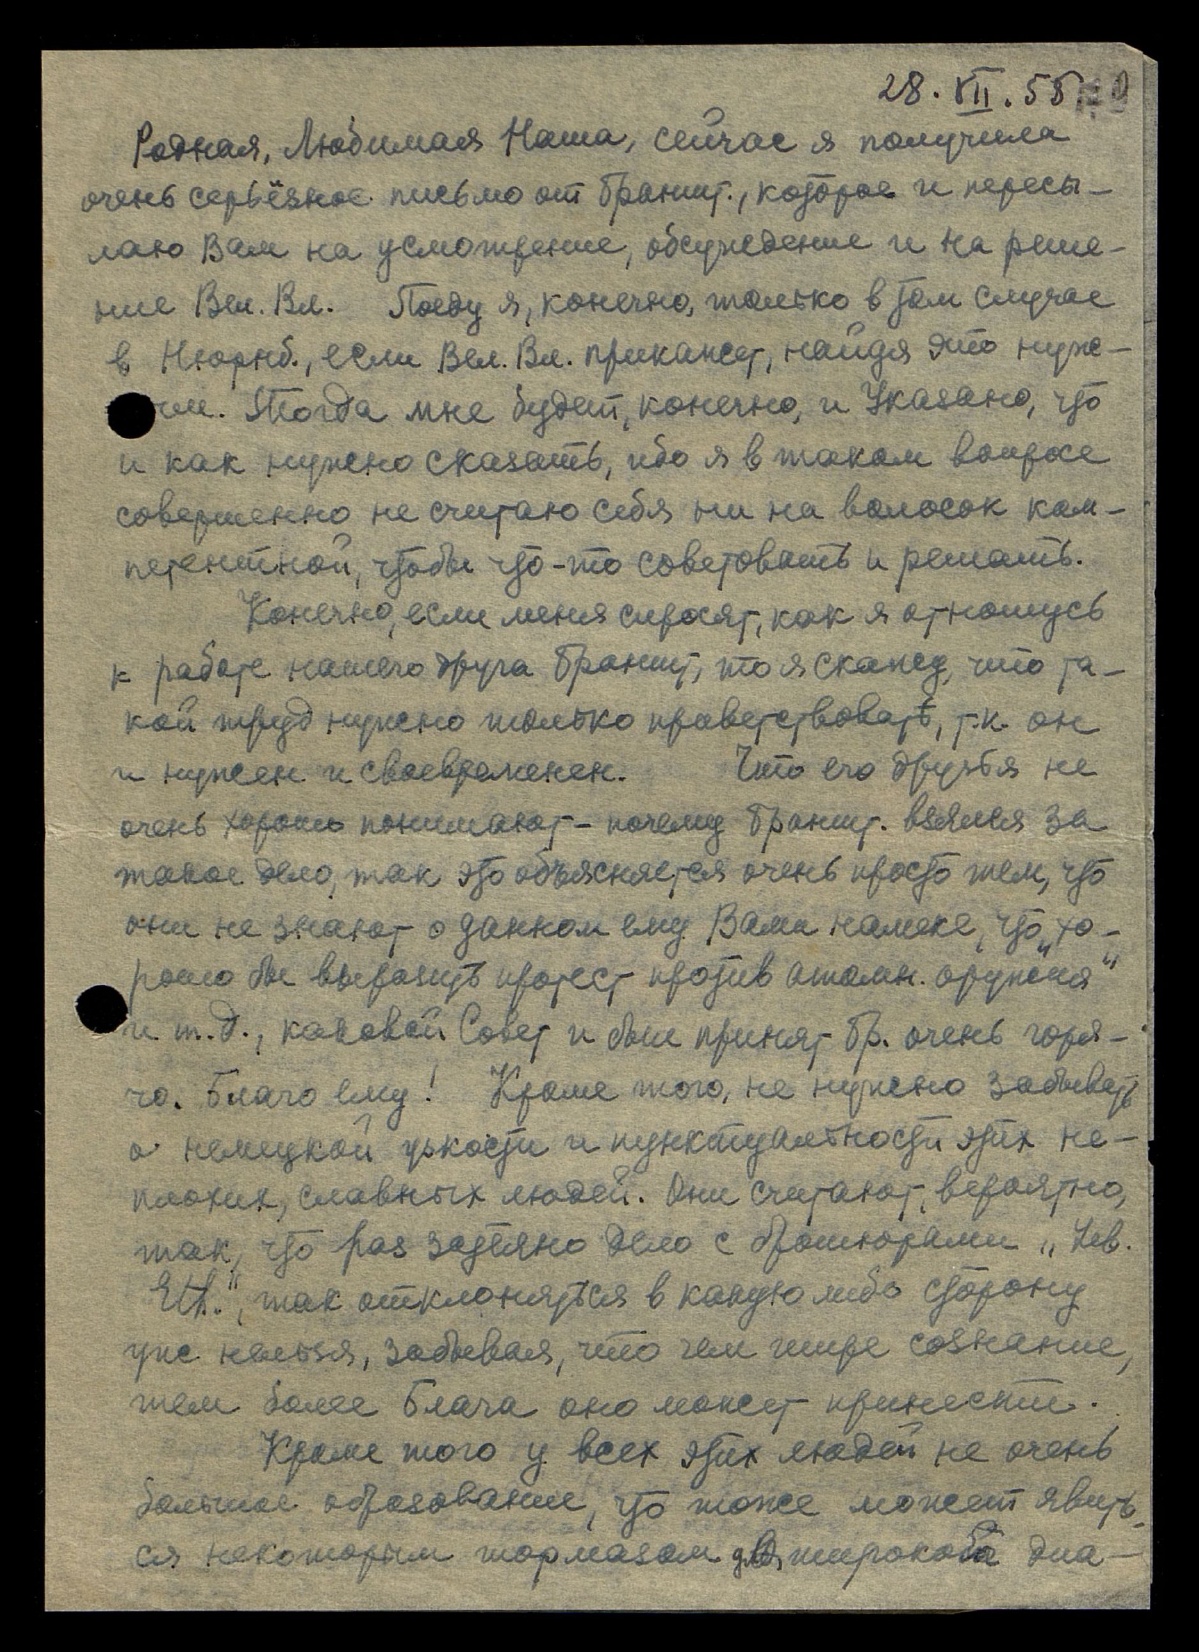 28. VII. 55
Родная, Любимая Наша, сейчас я получила
очень серьёзное письмо от Браншт., которое и пересы-
лаю Вам на усмотрение, обсуждение и на реше-
ние Вел. Вл. Поеду я, конечно, только в том случае
в Нюрнб., если Вел. Вл. прикажет, найдя это нуж-
ным. Тогда мне будет, конечно, и Указано, что
и как нужно сказать, ибо я в таком вопросе
совершенно не считаю себя ни на волосок ком-
петентной, чтобы что-то советовать и решать.
Конечно, если меня спросят, как я отношусь
к работе нашего друга Браншт, то я скажу, что та-
кой труд нужно только приветствовать, т.к. он
и нужен и своевременен. Что его друзья не
очень хорошо понимают - почему Браншт. взялся за
такое дело, так это объясняется очень просто тем, что
они не знают о данном ему Вами намеке, что „хо-
рошо бы выразить протест против атомн. оружия"
и т.д., каковой Совет и был принят Бр. очень горя-
чо. Благо ему! Кроме того, не нужно забывать
о немецкой узкости и пунктуальности этих не-
плохих, славных людей. Они считают, вероятно,
так, что раз затеяно дело с брошюрами „Leb.
Eth.", так отклоняться в какую либо сторону
уже нельзя, забывая, что чем шире сознание,
тем более Блага оно может принести.
Кроме того у всех этих людей не очень
большое образование, что тоже может явить-
ся некоторым тормазом для широкого диа-